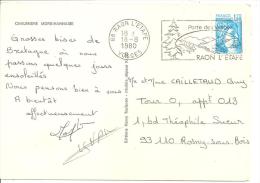 CHAUMIERE MORBIHANNAISE
Grosses bises de
Bretagne où nous
passons quelques jours
ensoleillés
Nous pensons bien à vous
A bientôt
affectueusement
88 RAON L'ETAPE
18 H
18-8
1980
VOSGES
Porte des
RAON L'ETAPE
FRANCE
Mr et Mme CAILLETAUD Guy
Tour O, appt 013
1, bd Théophile Sueur
93 110 Rosny sous Bois